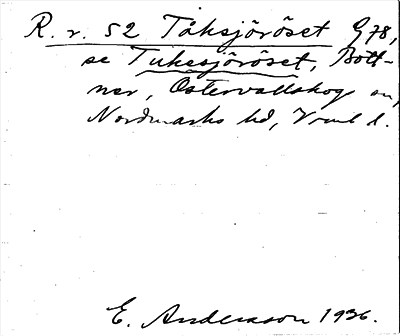 R. r. 52 Tåksjöröset G78,
se Tukesjöröset, Bott-
ner, Östervallskog sn,
Nordmarks hd, Vrml l.
E. Andersson 1936.